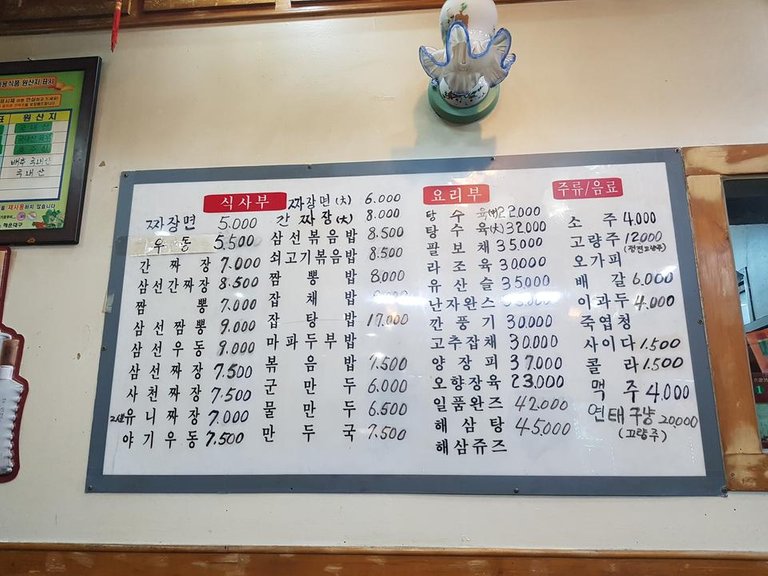 용식품 원산지 표시
원산지
배추 국내산
국내산
해운대구
식사부
짜장면 5.000
우동 5.500
간짜장 7.000
삼선간짜장 8.500
짬뽕 7.000
삼선짬뽕 9.000
삼선우동 9.000
삼선짜장 7.500
사천짜장 7.500
유니짜장 7.000
야기우동 7.500
짜장면(大) 6.000
간짜장(大) 8.000
삼선볶음밥 8.500
쇠고기볶음밥 8.500
짬뽕밥 8.000
잡채밥
잡탕밥 17.000
마파두부밥
볶음밥 7.500
군만두 6.000
물만두 6.500
만두국 7.500
요리부
탕수육 22.000
탕수육(大) 32.000
팔보채 35000
라조육 30000
유산슬 35000
난자완스
깐풍기 30.000
고추잡채 30.000
양장피 37.000
오향장육 23.000
일품완즈 42.000
해삼탕 45.000
해삼쥬즈
주류/음료
소주 4000
고량주 12000
오가피
배갈 6.000
이과두 4.000
죽엽청
사이다 1.500
콜라 1.500
맥주 4.000
연태구냥 20,000
(고량주)